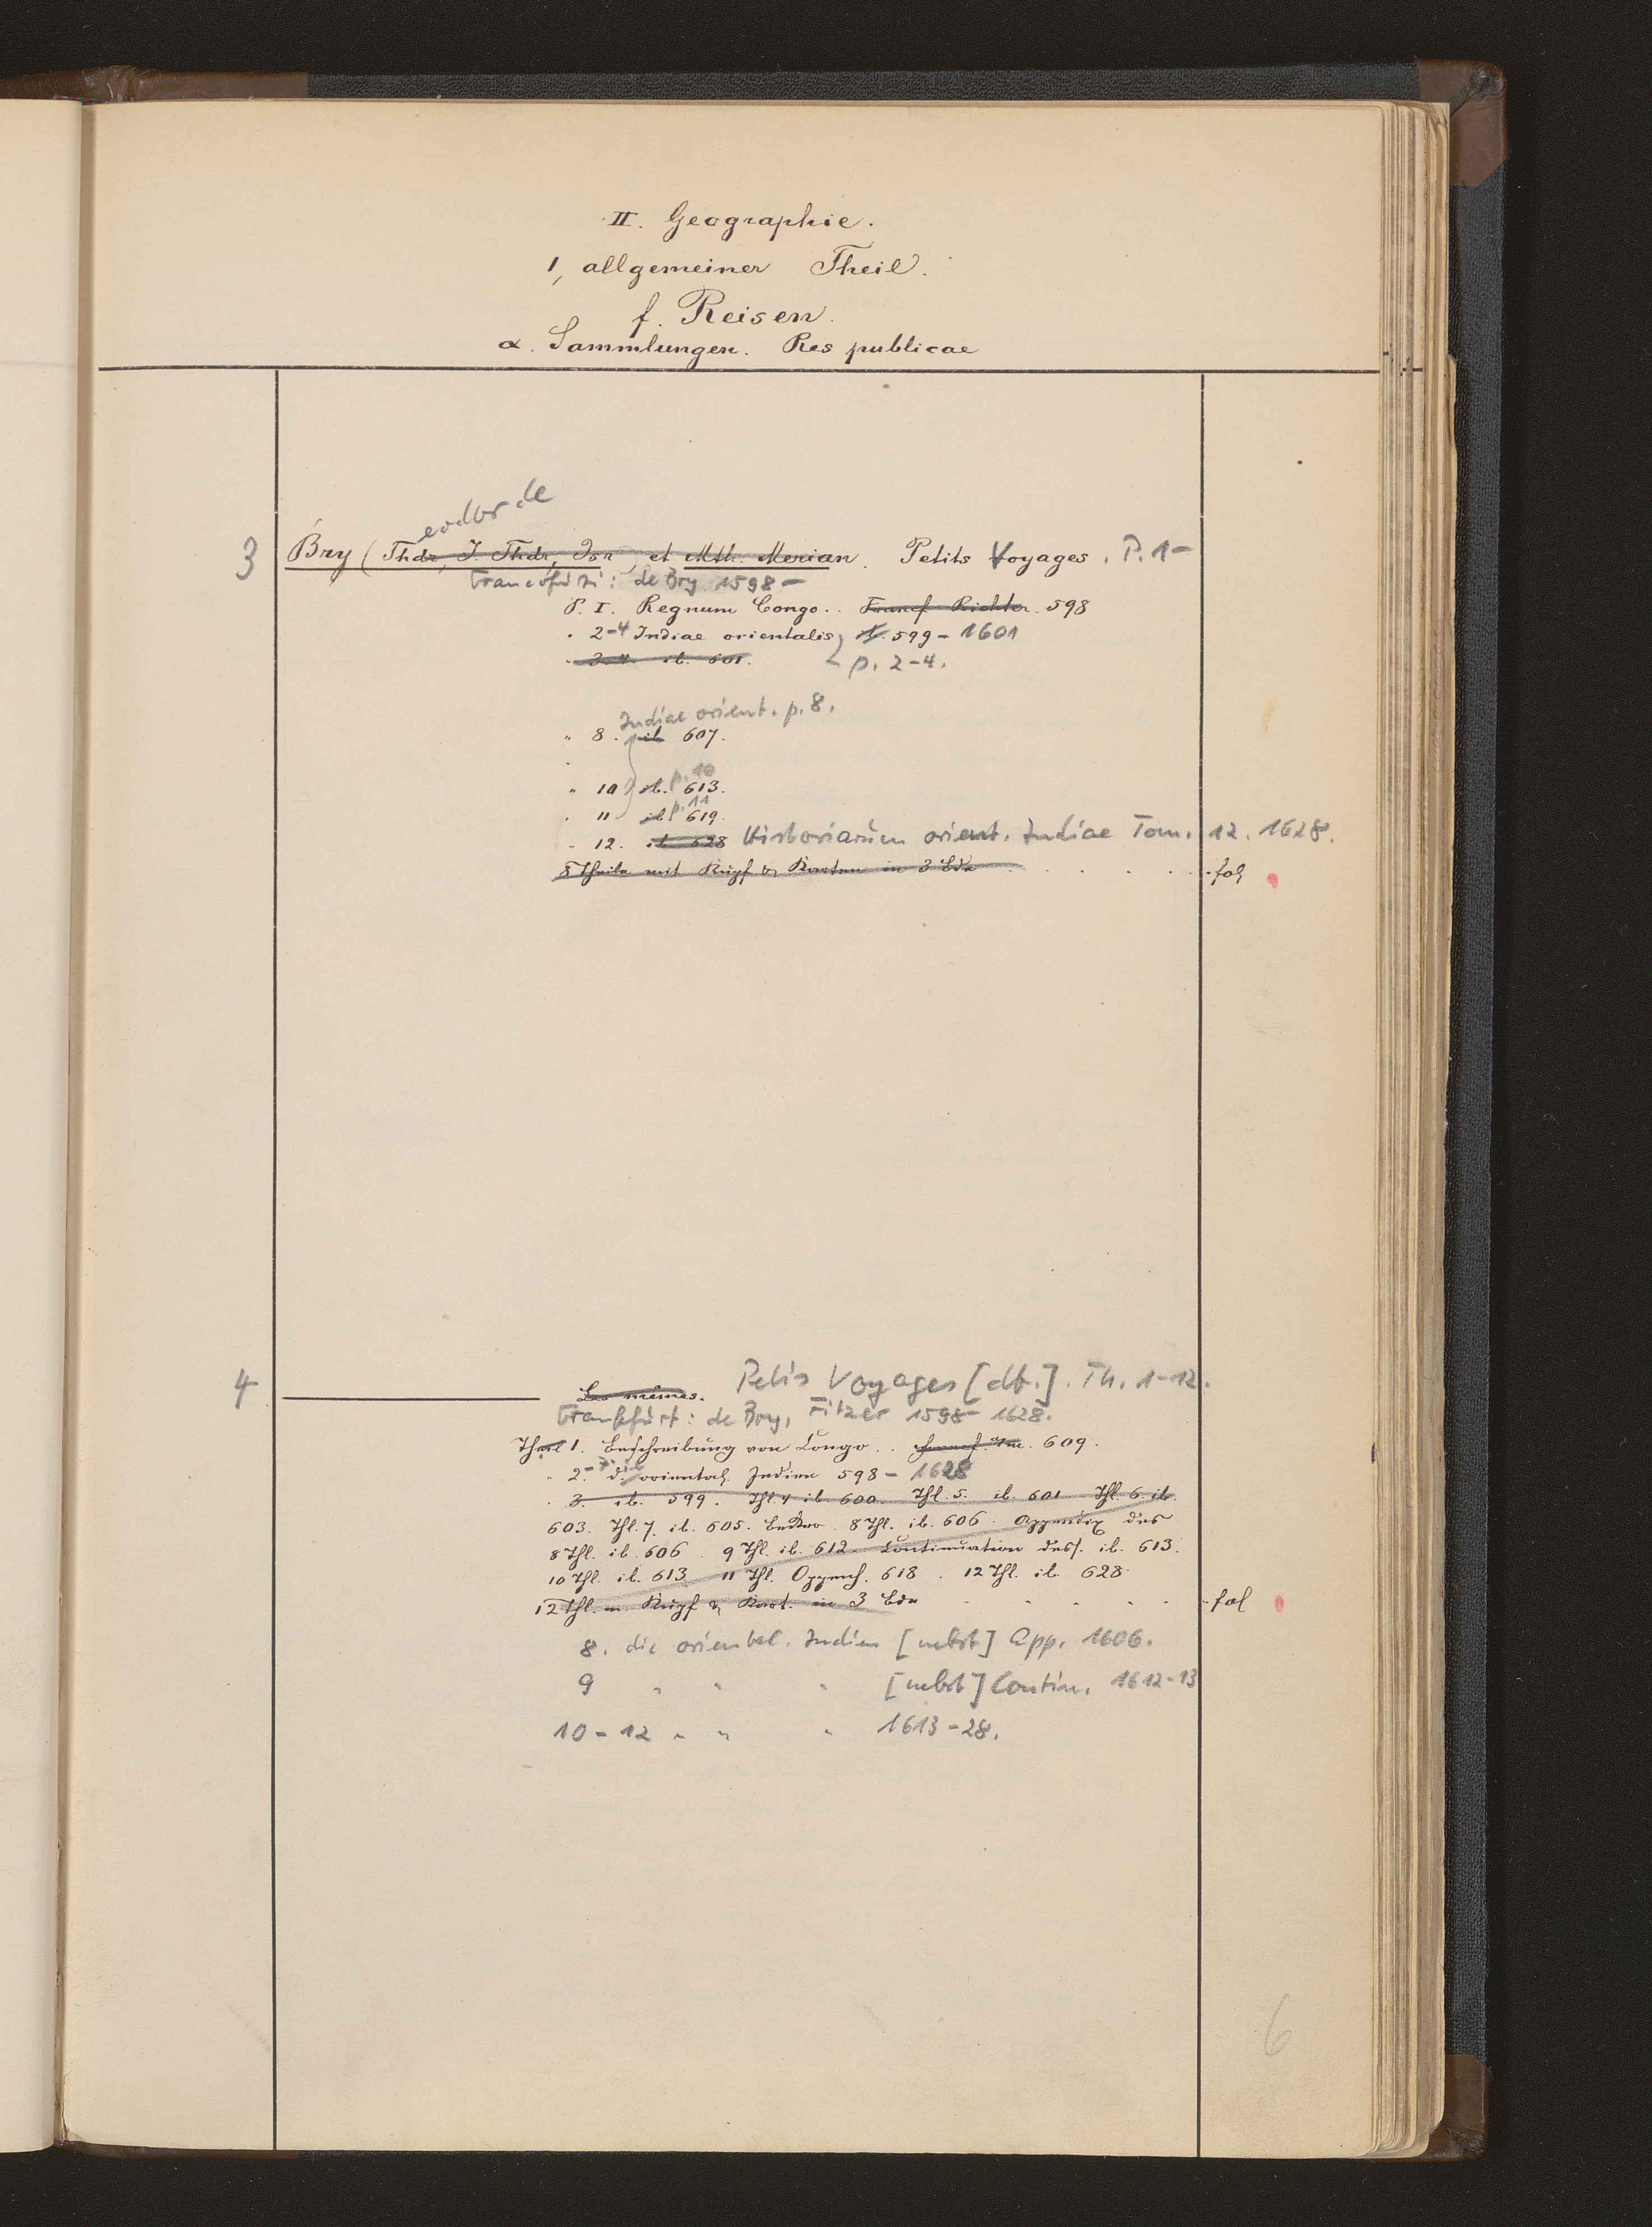 II. Geographie.
1, allgemeiner Theil.
f. Reisen.
α. Sammlungen. Res publicae
eodor de
3 Bry (Thdr, J. Thdr, Isr) et Mth. Merian. Petits Voyages. P. 1-
Francofurti: de Bry 1598-
P. I. Regnum Congo.. Francf Richter. 598
" 2-4 Indiae orientalis 599-1601
" 3.4. ib. 601. p. 2-4.
Indiae orient. p. 8.
" 8. ib 607.
p. 10
" 10 ib. 613.
p. 11
" 11 ib 619.
" 12. ib 628 Historiarum orient. Indiae Tom. 12. 1628.
8 Theile mit Kupf & Karten in 3 Bde . . . . . fol
4 Les mêmes. Petis Voyages [dt.]. Th. 1-12.
Frankfurt: de Bry, Fitzer 1598-1628.
Theil 1. Beschreibung von Congo.. 609.
" 2.-7. d. oriental. Indien 598-1628
" 3. ib. 599. Thl. 4 ib. 600. Thl. 5. ib. 601 Thl. 6. ib.
603. Thl. 7. ib. 605. Becker. 8 Thl. ib. 606. Appendix des
8 Thl. ib. 606. 9 Thl. ib. 612. Continuation dess. ib. 613.
10 Thl. ib. 613. 11 Thl. Oppenh. 618. 12 Thl. ib. 628
12 Thl. m. Kupf & Kart. in 3 Bdn . . . . . fol
8. die oriental. Indien [nebst] App. 1606.
9 " " " [nebst] Contin. 1612-13
10-12 " " " 1613-28.
6